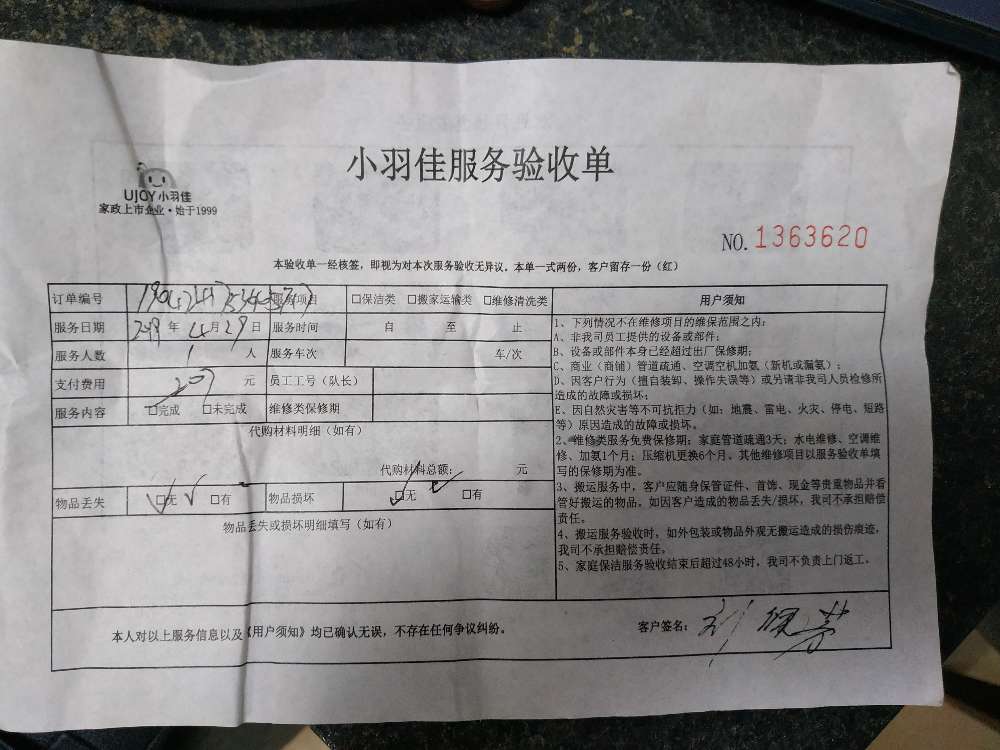 小羽佳服务验收单
UJOY小羽佳
家政上市企业·始于1999
NO. 1363620
本验收单一经核签，即视为对本次服务验收无异议。本单一式两份，客户留存一份（红）
订单编号 服务项目 □保洁类 □搬家运输类 □维修清洗类
服务日期 2019 年 4 月 29 日 服务时间 自 至 止
服务人数 1 人 服务车次 车/次
支付费用 207 元 员工工号（队长）
服务内容 □完成 □未完成 维修类保修期
代购材料明细（如有）
代购材料总额： 元
物品丢失 □无 □有 物品损坏 □无 □有
物品丢失或损坏明细填写（如有）
用户须知
1、下列情况不在维修项目的维保范围之内：
A、非我司员工提供的设备或部件；
B、设备或部件本身已经超过出厂保修期；
C、商业（商铺）管道疏通、空调空机加氨（新机或漏氨）；
D、因客户行为（擅自装卸、操作失误等）或另请非我司人员检修所
造成的故障或损坏；
E、因自然灾害等不可抗拒力（如：地震、雷电、火灾、停电、短路
等）原因造成的故障或损坏。
2、维修类服务免费保修期：家庭管道疏通3天；水电维修、空调维
修、加氨1个月；压缩机更换6个月。其他维修项目以服务验收单填
写的保修期为准。
3、搬运服务中，客户应随身保管证件、首饰、现金等贵重物品并看
管好搬运的物品，如因客户造成的物品丢失/损坏，我司不承担赔偿
责任。
4、搬运服务验收时，如外包装或物品外观无搬运造成的损伤痕迹，
我司不承担赔偿责任。
5、家庭保洁服务验收结束后超过48小时，我司不负责上门返工。
本人对以上服务信息以及《用户须知》均已确认无误，不存在任何争议纠纷。
客户签名：